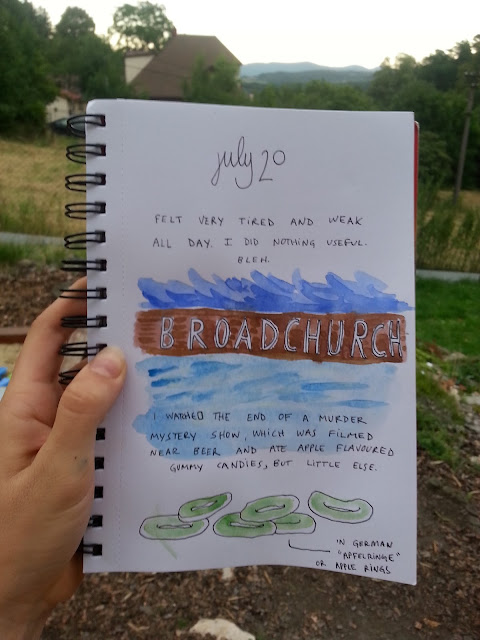 july 20
FELT VERY TIRED AND WEAK
ALL DAY. I DID NOTHING USEFUL.
BLEH.
BROADCHURCH
I WATCHED THE END OF A MURDER
MYSTERY SHOW, WHICH WAS FILMED
NEAR BEER AND ATE APPLE FLAVOURED
GUMMY CANDIES, BUT LITTLE ELSE.
IN GERMAN
"APFELRINGE"
OR APPLE RINGS